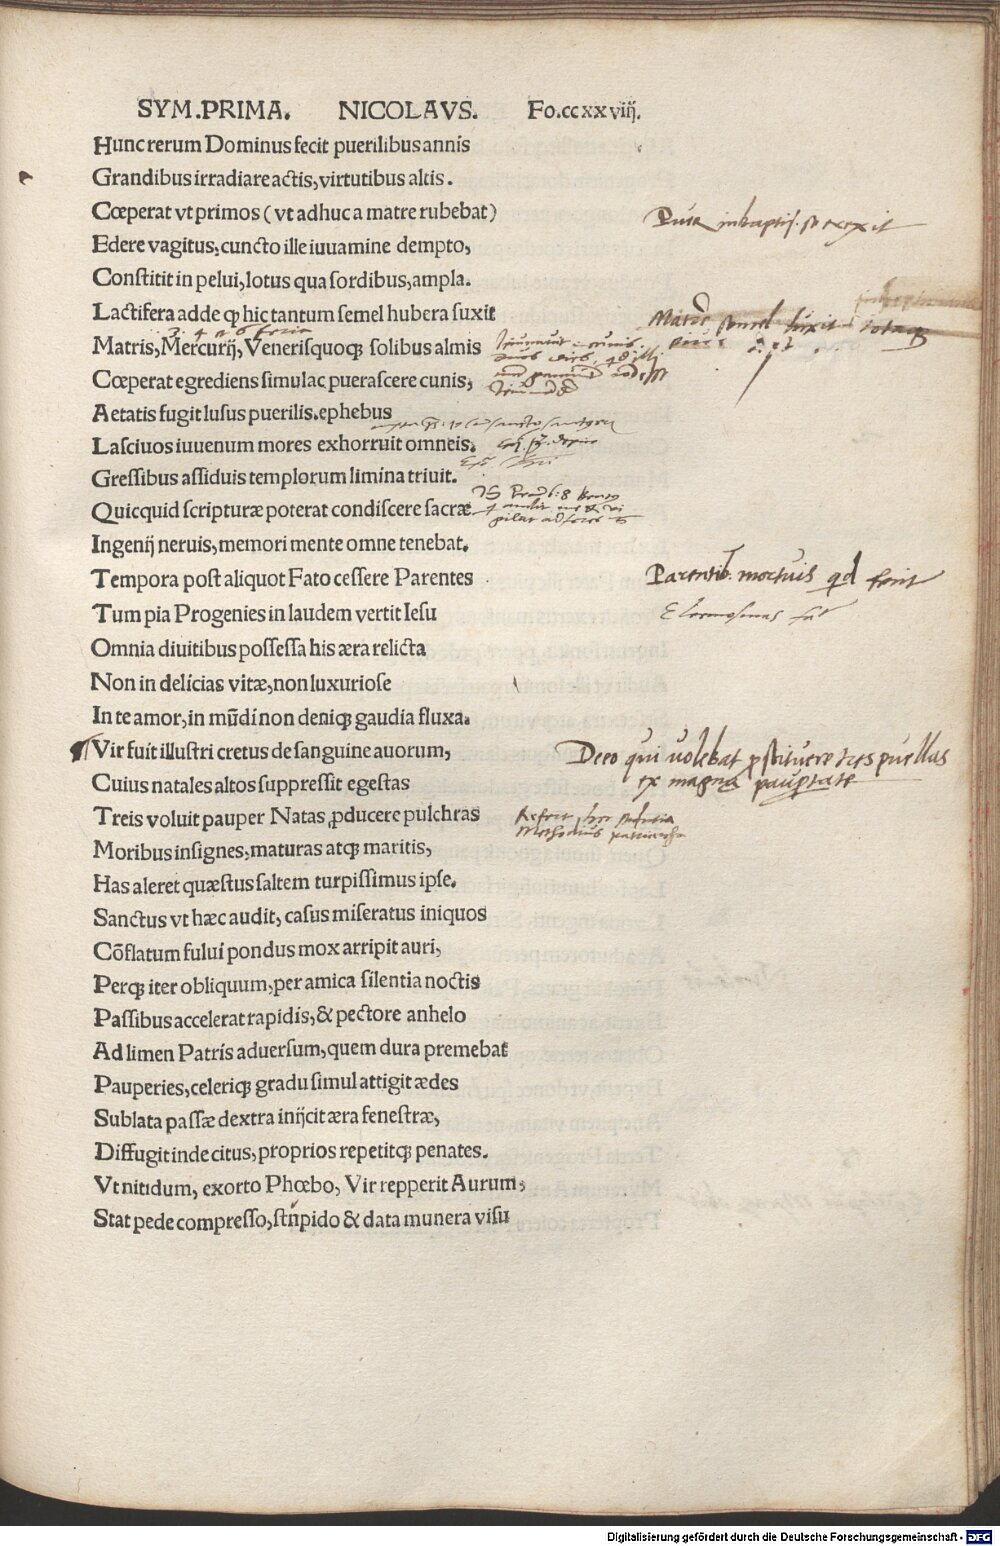 SYM.PRIMA. NICOLAVS. Fo.ccxxviij.
Hunc rerum Dominus fecit puerilibus annis
Grandibus irradiare actis, virtutibus altis.
Cœperat vt primos (vt adhuc a matre rubebat)
Edere vagitus, cuncto ille iuuamine dempto,
Constitit in pelui, lotus qua sordibus, ampla.
Lactifera adde ꝙ hic tantum semel hubera suxit
Matris, Mercurij, Venerisquoqꝫ solibus almis
Cœperat egrediens simulac puerascere cunis,
Aetatis fugit lusus puerilis. ephebus
Lasciuos iuuenum mores exhorruit omneis.
Gressibus assiduis templorum limina triuit.
Quicquid scripturæ poterat condiscere sacræ
Ingenij neruis, memori mente omne tenebat.
Tempora post aliquot Fato cessere Parentes
Tum pia Progenies in laudem vertit Iesu
Omnia diuitibus possessa his æra relicta
Non in delicias vitæ, non luxuriose
In te amor, in mūdi non deniqꝫ gaudia fluxa.
Vir fuit illustri cretus de sanguine auorum,
Cuius natales altos suppressit egestas
Treis voluit pauper Natas ꝓducere pulchras
Moribus insignes, maturas atqꝫ maritis,
Has aleret quæstus saltem turpissimus ipse.
Sanctus vt hæc audit, casus miseratus iniquos
Cōflatum fului pondus mox arripit auri,
Perqꝫ iter obliquum, per amica silentia noctis
Passibus accelerat rapidis, & pectore anhelo
Ad limen Patris aduersum, quem dura premebat
Pauperies, celeriqꝫ gradu simul attigit ædes
Sublata passæ dextra inijcit æra fenestræ,
Diffugit inde citus, proprios repetitqꝫ penates.
Vt nitidum, exorto Phœbo, Vir repperit Aurum,
Stat pede compresso, stupido & data munera visu
semel suxit
Parentib. mortuis qd fecit
Elemosinas
De eo qui volebat ꝓstituere tres puellas
ex magna paupertate
Methodius patriarcha
Digitalisierung gefördert durch die Deutsche Forschungsgemeinschaft - DFG